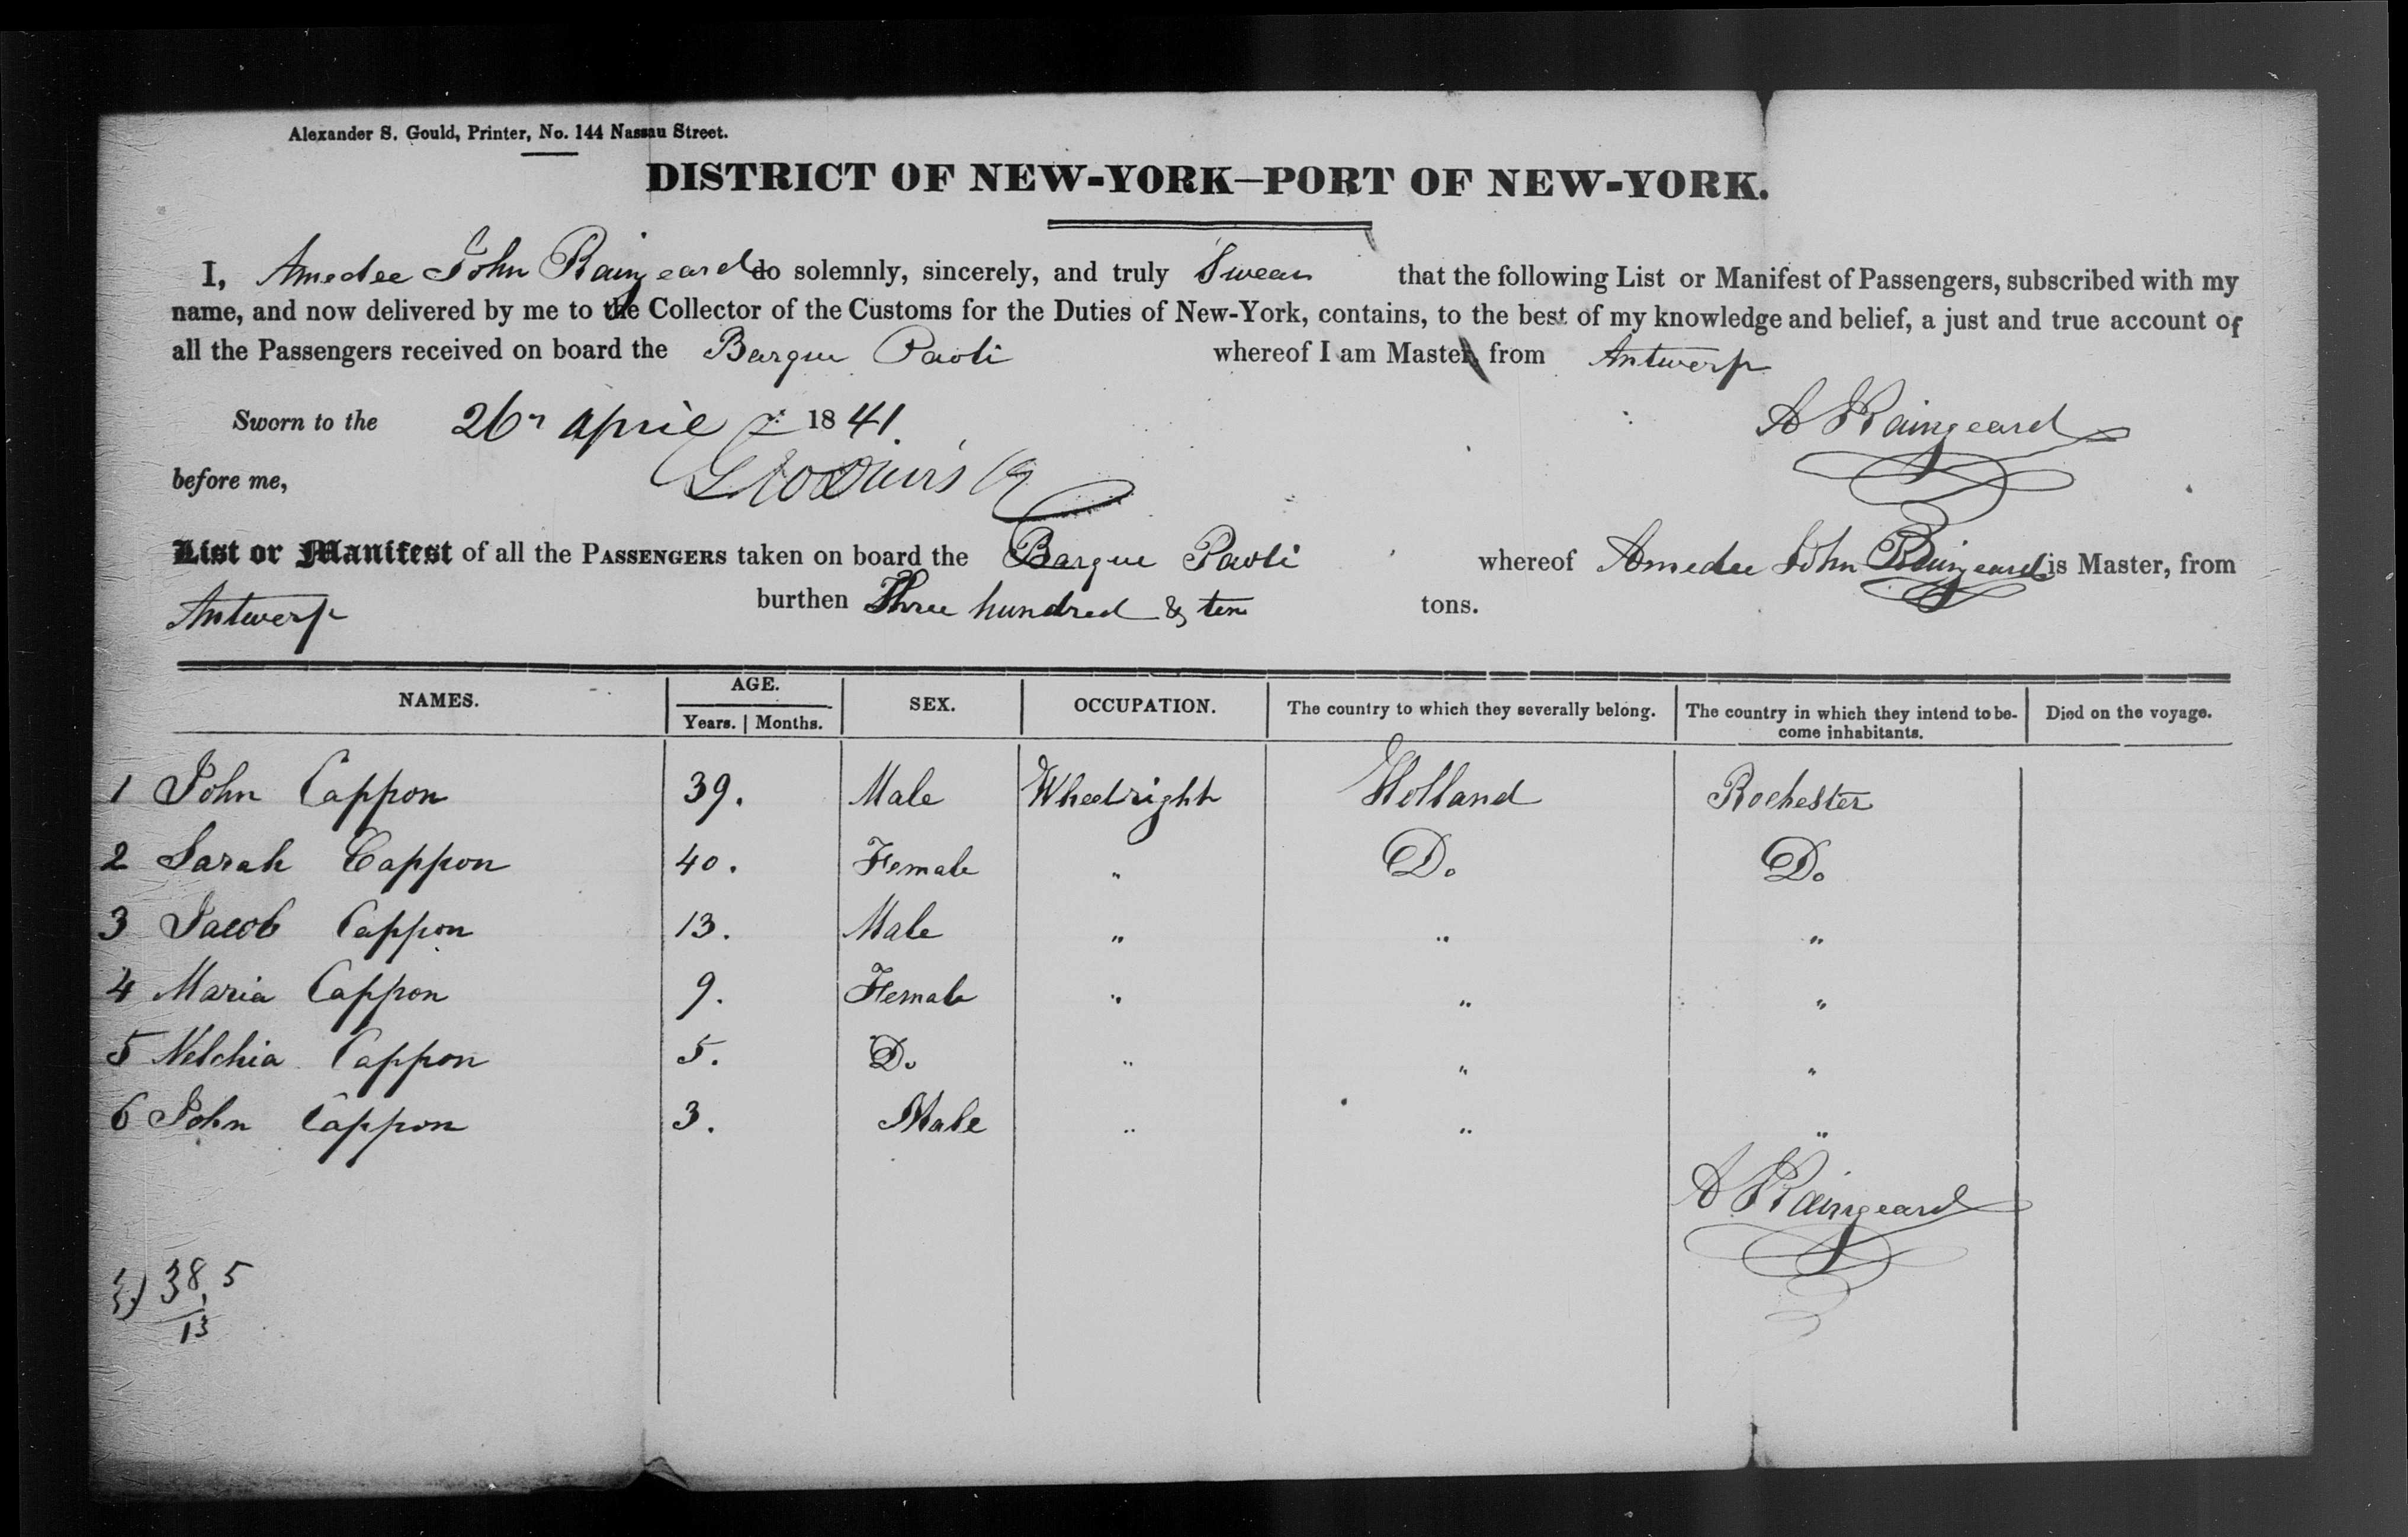 Alexander S. Gould, Printer, No. 144 Nassau Street.
DISTRICT OF NEW-YORK—PORT OF NEW-YORK.
I, Amedee John Raingeard do solemnly, sincerely, and truly Swear that the following List or Manifest of Passengers, subscribed with my
name, and now delivered by me to the Collector of the Customs for the Duties of New-York, contains, to the best of my knowledge and belief, a just and true account of
all the Passengers received on board the Barque Paoli whereof I am Master, from Antwerp
Sworn to the 26 april 1841. A Raingeard
before me,
List or Manifest of all the PASSENGERS taken on board the Barque Paoli whereof Amedee John Raingeard is Master, from
Antwerp burthen Three hundred & ten tons.
NAMES. AGE. SEX. OCCUPATION. The country to which they severally belong. The country in which they intend to be- Died on the voyage.
Years. | Months. come inhabitants.
1 John Cappon 39. Male Wheelright Holland Rochester
2 Sarah Cappon 40. Female " Do Do
3 Jacob Cappon 13. Male " " "
4 Maria Cappon 9. Female " " "
5 Nelchia Cappon 5. Do " " "
6 John Cappon 3. Male " " "
A Raingeard
38,5
13